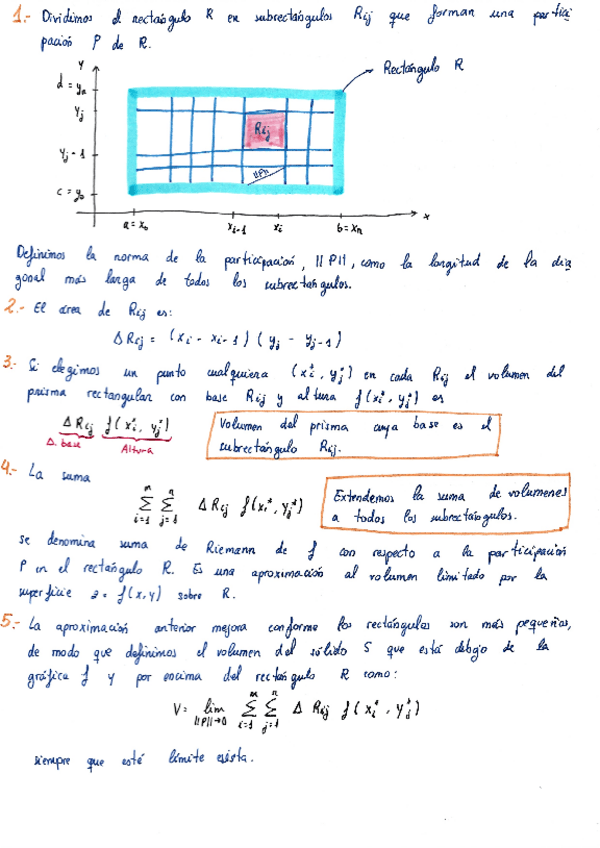 1.- Dividimos el rectángulo R en subrectángulos Rij que forman una partici
pación P de R.
Rectángulo R
y
d = yn
yj
Rij
yj-1
||P||
c = y0
a = x0
xi-1
xi
b = xn
x
Definimos la norma de la participación, ||P||, como la longitud de la dia
gonal más larga de todos los subrectángulos.
2.- El área de Rij es:
ΔRij = (xi - xi-1) (yj - yj-1)
3.- Si elegimos un punto cualquiera (xi*, yj*) en cada Rij el volumen del
prisma rectangular con base Rij y altura f(xi*, yj*) es
ΔRij f(xi*, yj*)
Δ. base
Altura
Volumen del prisma cuya base es el
subrectángulo Rij.
4.- La suma
m n
Σ Σ ΔRij f(xi*, yj*)
i=1 j=1
Extendemos la suma de volumenes
a todos los subrectángulos.
se denomina suma de Riemann de f con respecto a la participación
P en el rectángulo R. Es una aproximación al volumen limitado por la
superficie z = f(x,y) sobre R.
5.- La aproximación anterior mejora conforme los rectángulos son más pequeños,
de modo que definimos el volumen del sólido S que está debajo de la
gráfica f y por encima del rectángulo R como:
m n
V = lim Σ Σ Δ Rij f(xi*, yj*)
||P||→0 i=1 j=1
siempre que esté límite exista.